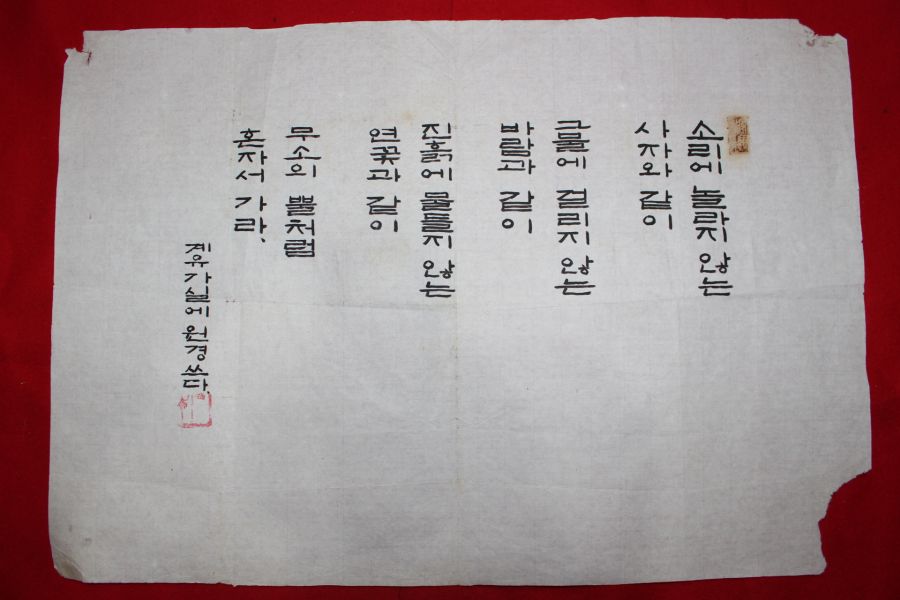 소리에 놀라지 않는
사자와 같이
그물에 걸리지 않는
바람과 같이
진흙에 물들지 않는
연꽃과 같이
무소의 뿔처럼
혼자서 가라.
유가실에 원경 쓰다.